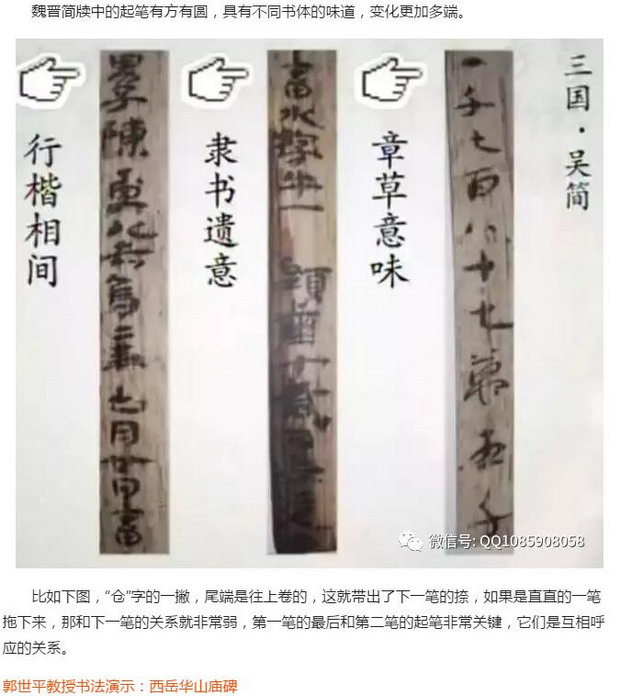 魏晋简牍中的起笔有方有圆，具有不同书体的味道，变化更加多端。
三国·吴简
章草意味
一千七百八十七
隶书遗意
行楷相间
微信号: QQ1085908058
比如下图，“仓”字的一撇，尾端是往上卷的，这就带出了下一笔的捺，如果是直直的一笔
拖下来，那和下一笔的关系就非常弱，第一笔的最后和第二笔的起笔非常关键，它们是互相呼
应的关系。
郭世平教授书法演示：西岳华山庙碑